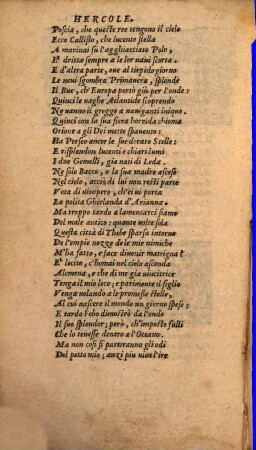 HERCOLE.
Poscia, che queste ree tengono il cielo
Ecco Callisto, che lucente stella
A marinai su l'agghiacciato Polo,
E dritta sempre a le lor navi scorta.
E d'altra parte, ove al tiepido giorno
Le nevi sgombra Primavera, splende
Il Bue, ch'Europa portò giù per l'onde:
Quinci le vaghe Atlantide scoprendo
Ne vanno il gregge a naviganti iniquo.
Quinci con la sua fiera horrida chioma
Orione a gli Dei mette spavento:
Ha Perseo ancor le sue dorate Stelle:
E risplendon lucenti e chiari lumi
I due Gemelli, gia nati di Leda.
Ne solo Bacco, o la sua madre ascese
Nel cielo, acciò di lui non resti parte
Vota di vitupero, ch'ei vi porta
La polita Ghirlanda d'Arianna.
Ma troppo tardo a lamentarci siamo
Del male antico: quante volte sola
Questa città di Thebe sparsa intorno
De l'empie nozze de le mie nimiche
M'ha fatto, e face divenir matrigna?
E' lecito, c'homai nel cielo ascenda
Alcmena, e che di me gia vincitrice
Tenga il mio loco; e parimente il figlio
Venga volando a le promesse stelle,
Al cui nascere il mondo un giorno spese:
E tardo Febo dimostrò da l'onde
Il suo splendor; però, ch'imposto fulli
Che lo tenesse dentro a l'Oceano.
Ma non così si partiranno gli odi
Del petto mio; anzi più vive l'ire